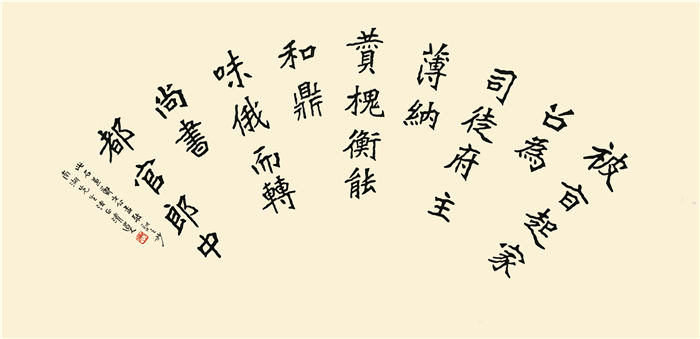 被旨起家
召為
司徒府主
薄納
賛槐衡能
和鼎
味俄而轉
尚書
都官郎中
先生法正